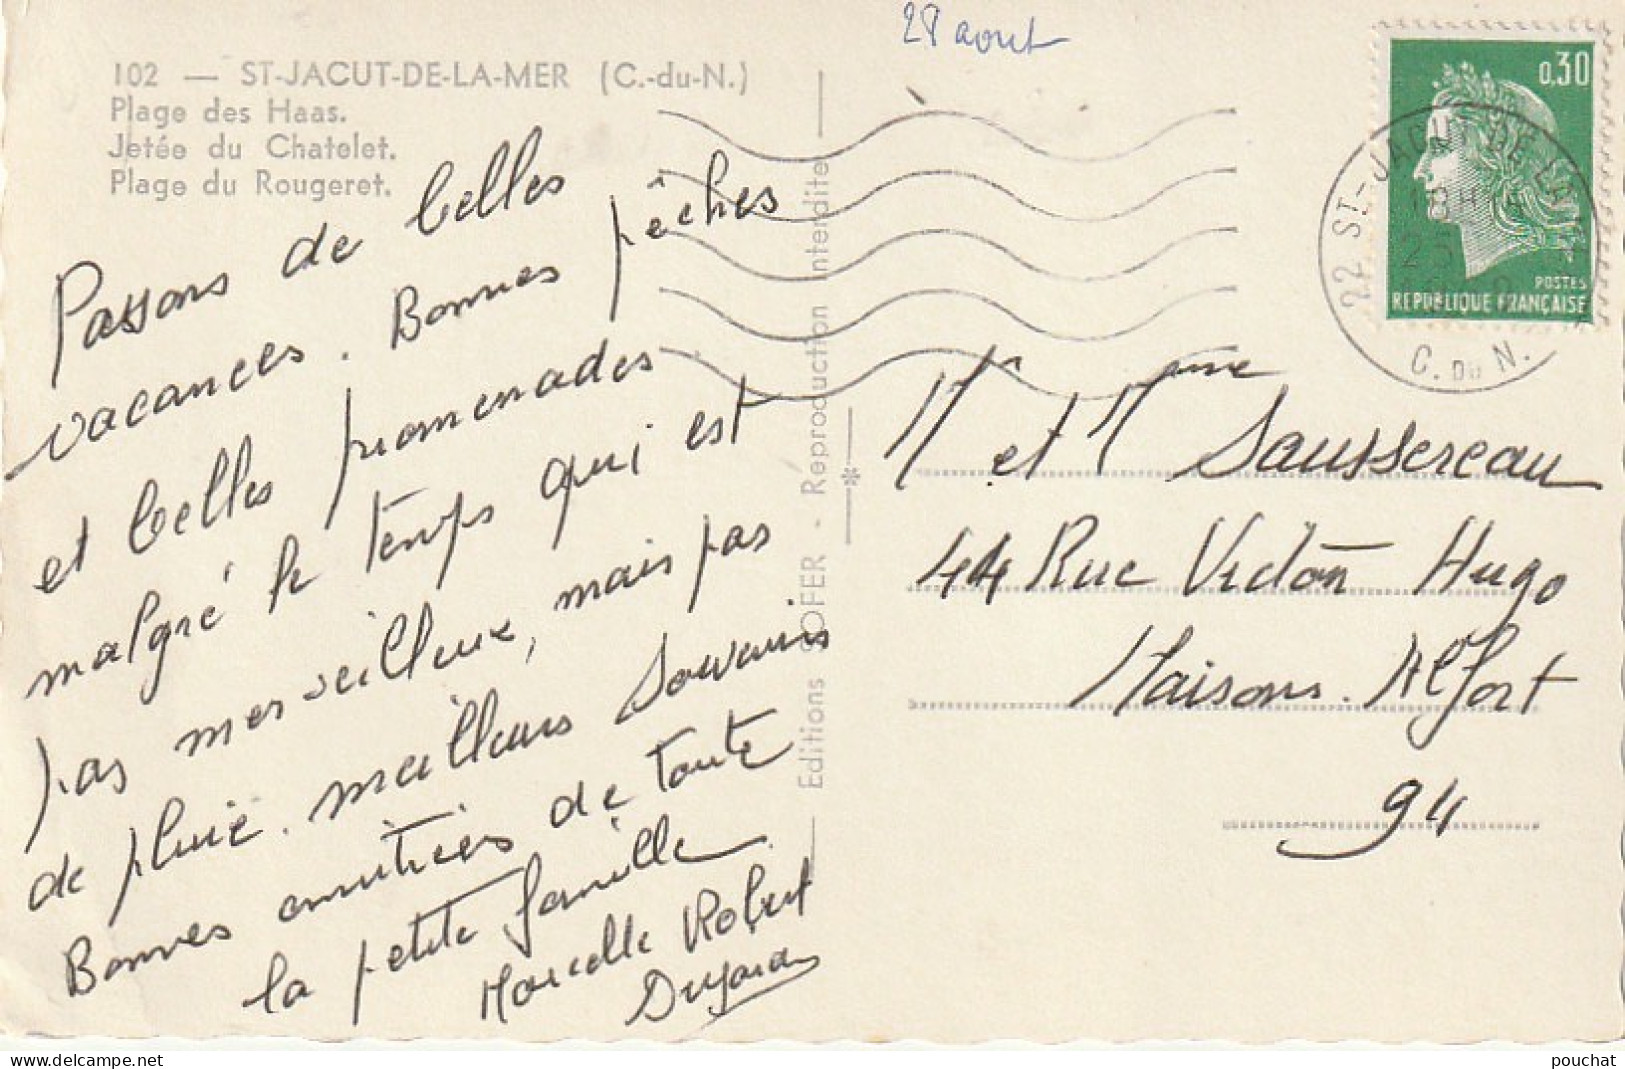 28 aout
102 — ST-JACUT-DE-LA-MER (C.-du-N.)
Plage des Haas.
Jetée du Chatelet.
Plage du Rougeret.
Passons de belles
vacances. Bonnes pêches
et belles promenades
malgré le temps qui est
pas merveilleux, mais pas
de pluie. meilleurs souvenirs
Bonnes amitiés de toute
la petite famille
Marcelle Robert
Dujardin
Editions SOFER - Reproduction Interdite
0,30
POSTES
REPUBLIQUE FRANÇAISE
22 ST-JACUT DE LA
25
C. DU N.
Mr et Mme Saussereau
44 Rue Victor Hugo
Maisons. Alfort
94
delcampe.net
pouchat